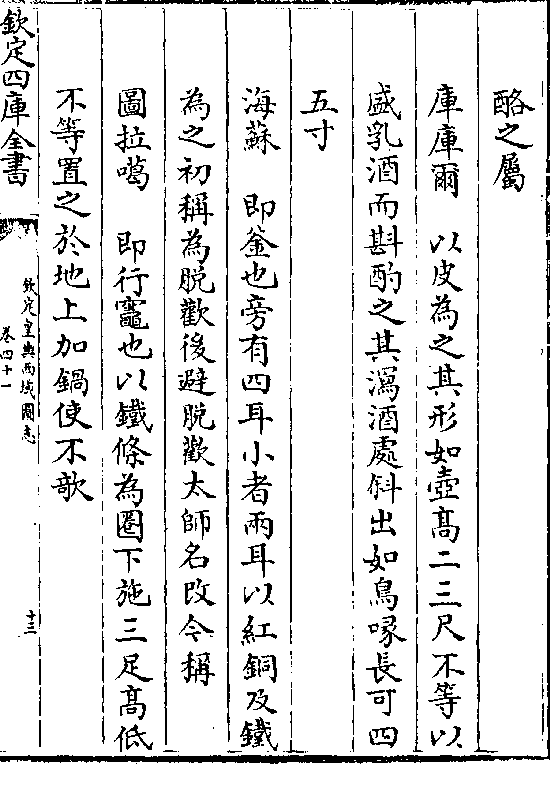 酪之屬
庫庫爾　以皮為之其形如壺高二三尺不等以
盛乳酒而斟酌之其瀉酒處斜出如鳥喙長可四
五寸
海蘇　即釜也旁有四耳小者兩耳以紅銅及鐵
為之初稱為脫歡後避脫歡太師名改今稱
圖拉噶　即行竈也以鐵條為圈下施三足高低
不等置之於地上加鍋使不欹
欽定四庫全書
欽定皇輿西域圖志
卷四十一
十三